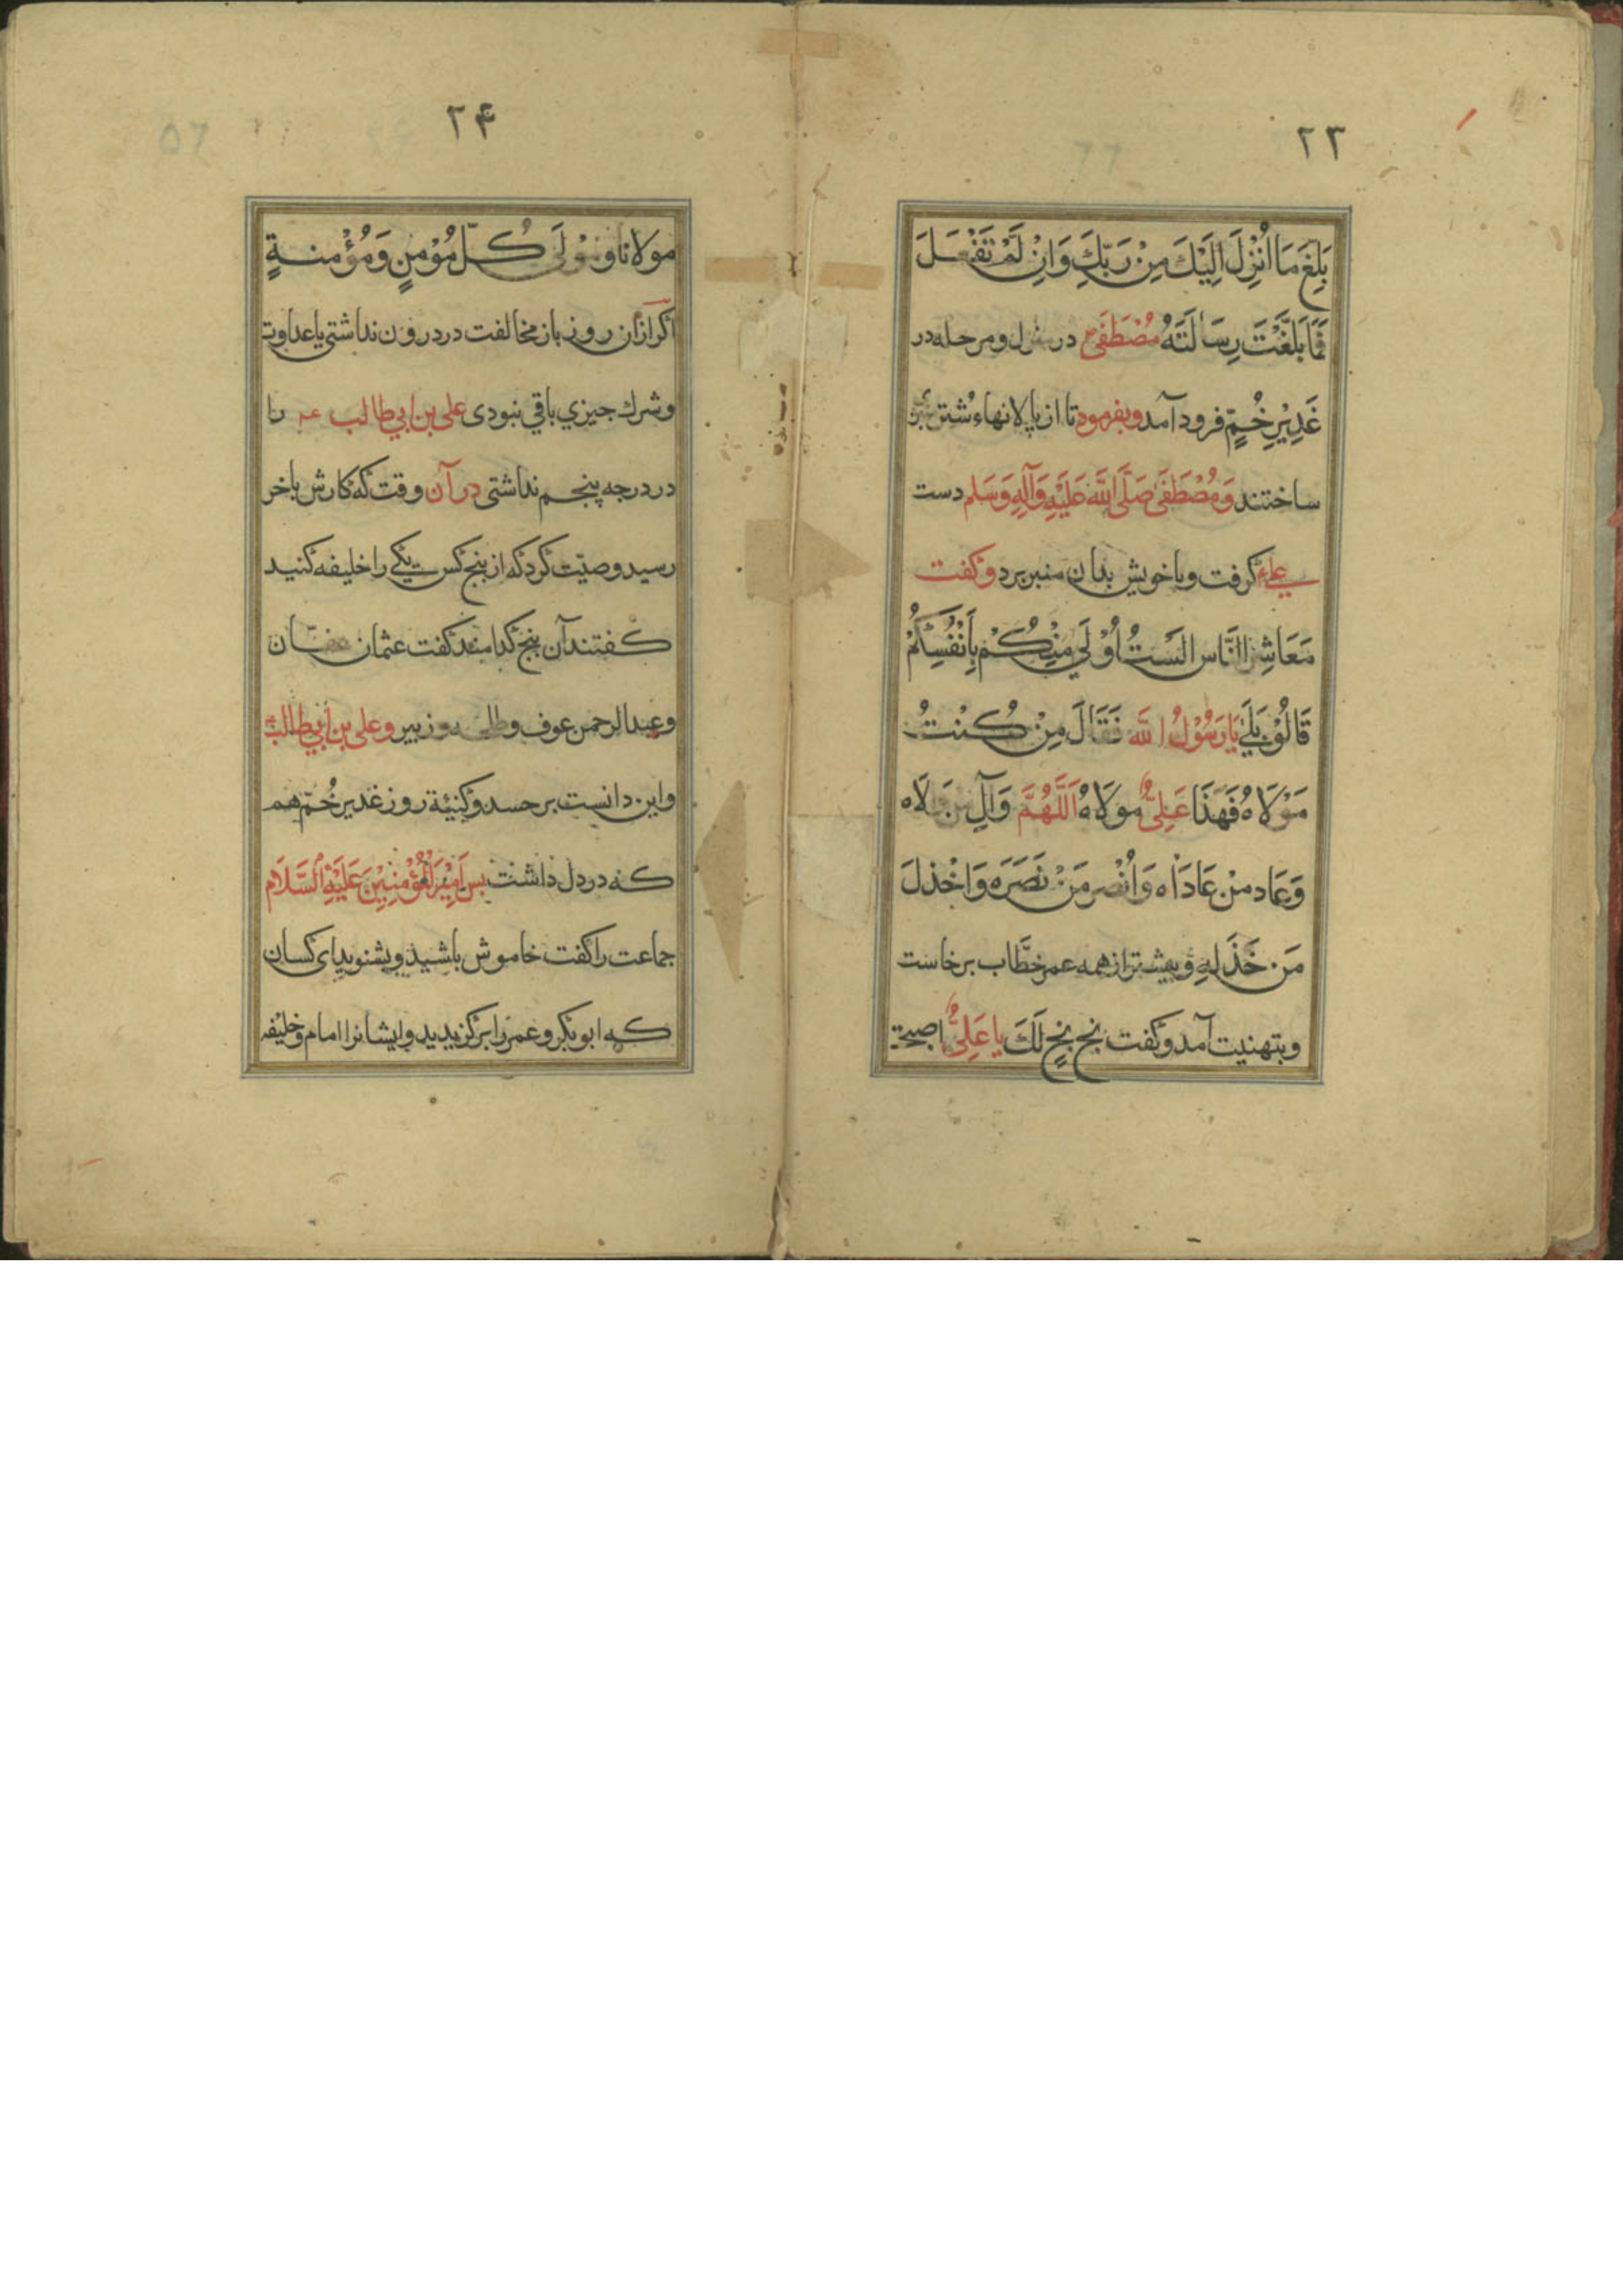 ۲۳
بَلِّغْ مَا اُنْزِلَ اِلَيْكَ مِنْ رَبِّكَ وَاِنْ لَمْ تَفْعَلْ
فَمَا بَلَّغْتَ رِسَالَتَهُ مُصْطَفَى در منزل ومرحله در
غَدِيْرِ خُمٍّ فرود آمد وبفرمود تا از پالانهاء شتر
ساختند وَمُصْطَفَى صَلَّى اللَّه عَلَيْهِ وَآلِهِ وَسَلم دست
على گرفت وباخویش بدان منبر برد وگفت
مَعَاشِرَ النَّاس الَسْتُ اَوْلَى مِنْكُمْ بِاَنْفُسِكُمْ
قَالُوْ بَلَى يَا رَسُوْلُ اللَّه فَقَالَ مِنْ كُنْتُ
مَوْلَاهُ فَهَذَا عَلِىٌّ مولَاهُ اَللَّهُمَّ وَآلِ من والَاه
وَعَاد مِنْ عَادَاه وَانْصر مَنْ نَصَرَه وَاخْذلَ
مَن خَذَلِهِ وپیشتر از همه عمر خطَّاب برخاست
وبتهنیت آمد وگفت بخ بخٍ لَكَ يا عَلِىٌّ اصبحت
۲۴
مولانا ومَوْلَى كُلّ مُوْمنٍ وَمُؤْمنةٍ
اگر ازان روز باز مخالفت در درون نداشتی یا عداوت
وشرك چیزی باقی نبودی علی بن ابی طالب عه را
در درجه پنجم نداشتی در آن وقت که کارش باخر
رسید وصیّت کرد که از پنج کس یکی را خلیفه کنید
گفتند آن پنج کدامند گفت عثمان عفان
وعبد الرحمن عوف وطلحه وزبیر وعلی بن ابی طالب
واین دانست بر حسد وکینهٔ روز غدیر خُمّ هم
که در دل داشت پس اَمِيْرَ الْمُؤْمنِيْنَ عَلَيْهِ السَّلَام
جماعت را گفت خاموش باشید وبشنوید ای کسان
که ابوبکر وعمر را برگزیدید وایشانرا امام وخلیفه